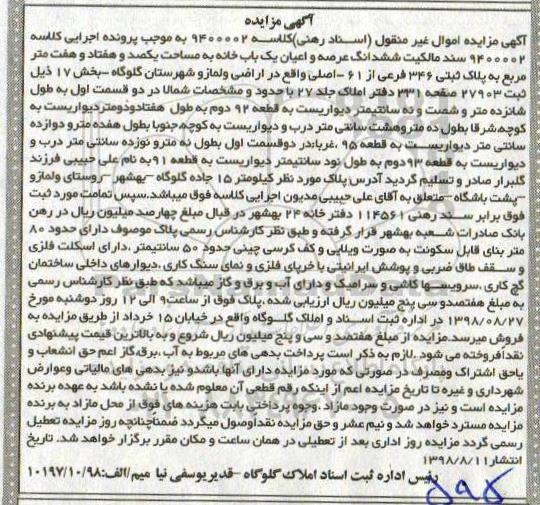 آگهی مزایده
آگهی مزایده اموال غیر منقول (اسناد رهنی)کلاسه ۹۴۰۰۰۰۲ به موجب پرونده اجرایی کلاسه
۹۴۰۰۰۰۲ سند مالکیت ششدانگ عرصه و اعیان یک باب خانه به مساحت یکصد و هفتاد و هفت متر
مربع به پلاک ثبتی ۳۴۶ فرعی از ۶۱-اصلی واقع در اراضی ولمازو شهرستان گلوگاه -بخش ۱۷ ذیل
ثبت ۲۷۹۰۳ صفحه ۳۳۱ دفتر املاک جلد ۲۷ با حدود و مشخصات شمالا در دو قسمت اول به طول
شانزده متر و شصت و نه سانتیمتر دیواریست به قطعه ۹۲ دوم به طول هفتادودومتردیواریست به
کوچه،شرقا بطول ده متروهشت سانتی متر درب و دیواریست به کوچه،جنوبا بطول هفده مترو دوازده
سانتی متر دیواریست به قطعه ۹۵ ،غربادر دوقسمت اول بطول ده مترو نوزده سانتی متر درب و
دیواریست به قطعه ۹۳دوم به طول نود سانتیمتر دیواریست به قطعه ۹۱به نام علی حبیبی فرزند
گلبرار صادر و تسلیم گردید آدرس پلاک مورد نظر کیلومتر ۱۵ جاده گلوگاه -بهشهر-روستای ولمازو
-پشت باشگاه -متعلق به آقای علی حبیبی مدیون اجرایی کلاسه فوق میباشد.سپس تمامت مورد ثبت
فوق برابر سند رهنی ۱۱۴۵۶۱ دفتر خانه ۲۴ بهشهر در قبال مبلغ چهارصد میلیون ریال در رهن
بانک صادرات شعبه بهشهر قرار گرفته و طبق نظر کارشناس رسمی پلاک موصوف دارای حدود ۸۰
متر بنای قابل سکونت به صورت ویلایی و کف کرسی چینی حدود ۵۰ سانتیمتر ،دارای اسکلت فلزی
و سقف طاق ضربی و پوشش ایرانیتی با خرپای فلزی و نمای سنگ کاری ،دیوارهای داخلی ساختمان
گچ کاری ،سرویسها کاشی و سرامیک و دارای آب و برق و گاز میباشد که طبق نظر کارشناس رسمی
به مبلغ هفتصدو سی پنج میلیون ریال ارزیابی شده .پلاک فوق از ساعت۹ الی ۱۲ روز دوشنبه مورخ
۱۳۹۸/۰۸/۲۷ در اداره ثبت اسناد و املاک گلوگاه واقع در خیابان ۱۵ خرداد از طریق مزایده به
فروش میرسد.مزایده از مبلغ هفتصد و سی و پنج میلیون ریال شروع و به بالاترین قیمت پیشنهادی
نقدا فروخته می شود .لازم به ذکر است پرداخت بدهی های مربوط به آب ،برق،گاز اعم حق انشعاب و
یاحق اشتراک ومصرف در صورتی که مورد مزایده دارای آنها باشدو نیز بدهی های مالیاتی وعوارض
شهرداری و غیره تا تاریخ مزایده اعم از اینکه رقم قطعی آن معلوم شده یا نشده باشد به عهده برنده
مزایده است و نیز در صورت وجود مازاد .وجوه پرداختی بابت هزینه های فوق از محل مازاد به برنده
مزایده مسترد خواهد شد و نیم عشر و حق مزایده نقدآوصول میگردد ضمنآچنانچه روز مزایده تعطیل
رسمی گردد مزایده روز اداری بعد از تعطیلی در همان ساعت و مکان مقرر برگزار خواهد شد. تاریخ
انتشار۱۳۹۸/۸/۱۱
رئیس اداره ثبت اسناد املاک گلوگاه -قدیریوسفی نیا میم/الف:۱۰۱۹۷/۱۰/۹۸